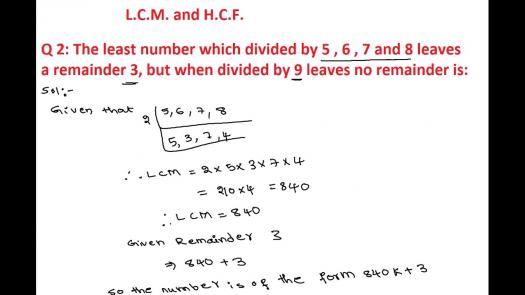 L.C.M. and H.C.F.
Q 2: The least number which divided by 5 , 6 , 7 and 8 leaves
a remainder 3, but when divided by 9 leaves no remainder is:
Sol:-
Given that 2 | 5, 6, 7, 8
5, 3, 7, 4
∴ LCM = 2 x 5 x 3 x 7 x 4
= 210 x 4 = 840
∴ LCM = 840
Given Remainder 3
⇒ 840 + 3
so the number is of the form 840K+3